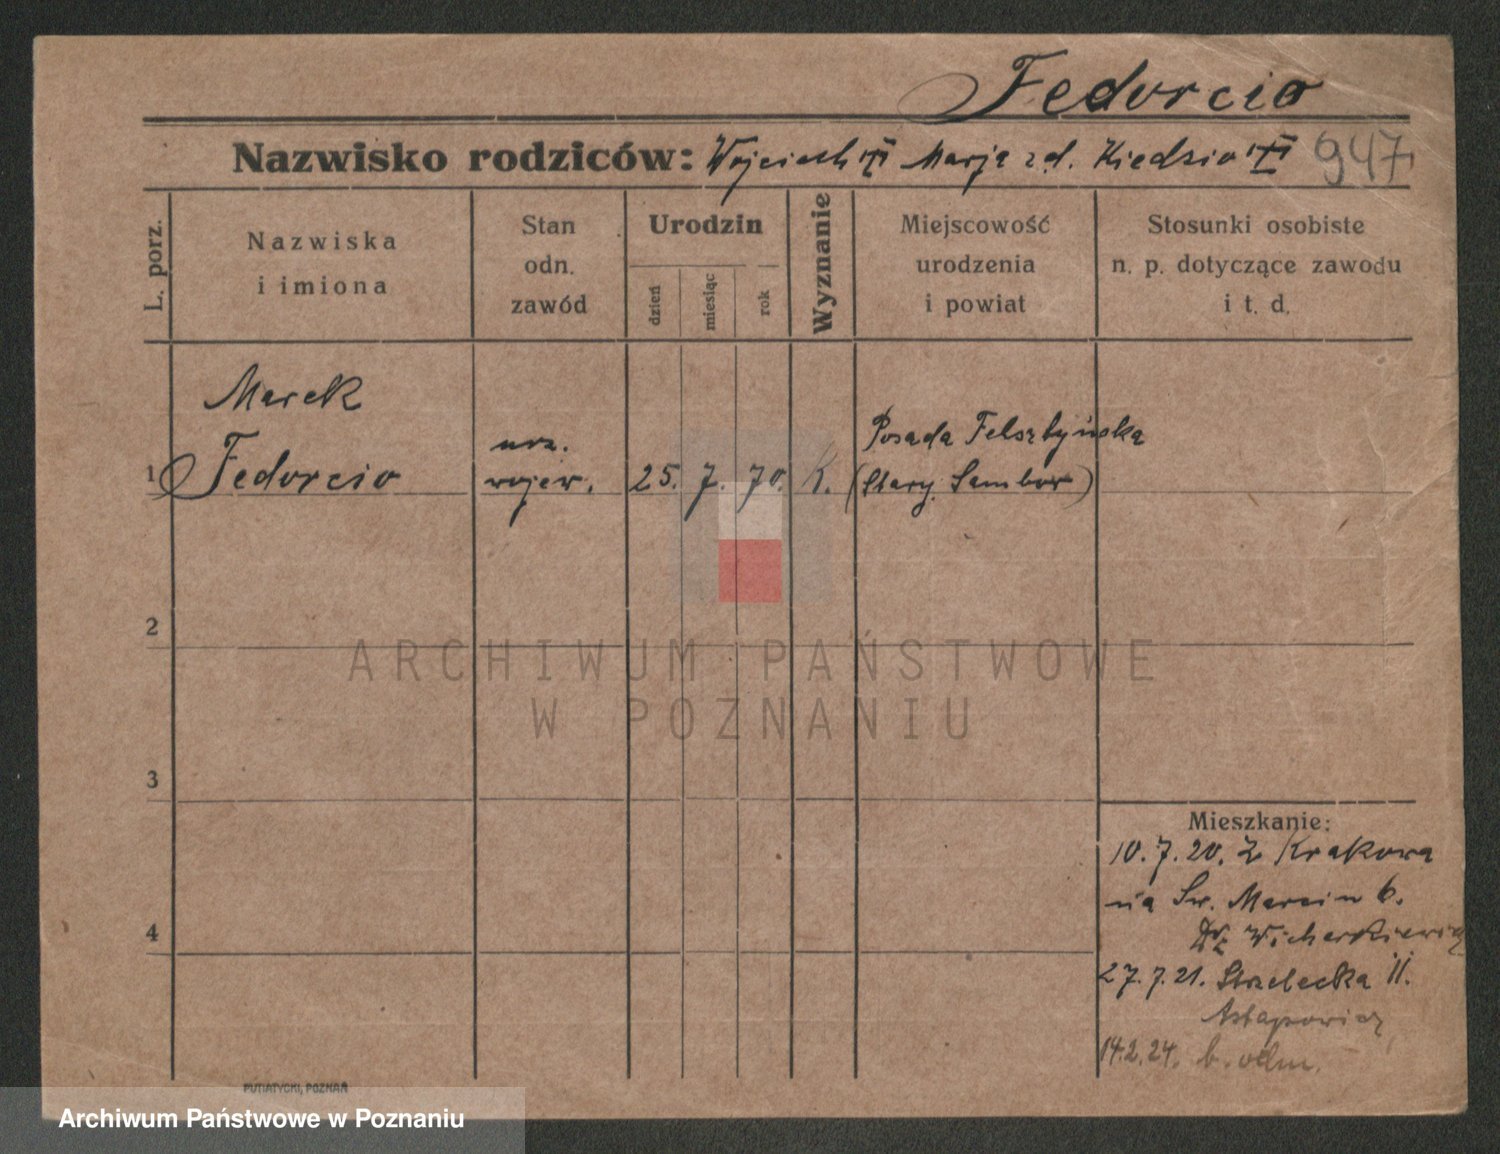 Fedorcio
Nazwisko rodziców: Wojciech Marja z d. Kiedzio 947
L. porz.
Nazwiska
i imiona
Stan
odn.
zawód
Urodzin
dzień
miesiąc
rok
Wyznanie
Miejscowość
urodzenia
i powiat
Stosunki osobiste
n. p. dotyczące zawodu
i t. d.
Marek
1 Fedorcio
urz.
wojew.
25. 7. 70. K.
Posada Felsztyńska
(Stary Sambor)
2
3
4
ARCHIWUM PAŃSTWOWE
W POZNANIU
Mieszkanie:
10.7.20. z Krakowa
na Św. Marcin 6.
Wicherkiewicz
27.7.21. Strzelecka 11.
Astapowicz
14.2.24. b. odm.
PUTIATYCKI, POZNAŃ
Archiwum Państwowe w Poznaniu